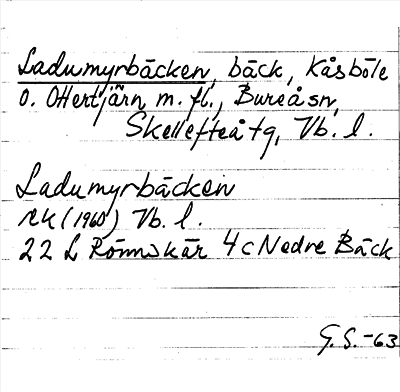 Ladumyrbäcken, bäck, Kåsböle
o. Ottertjärn m. fl., Bureå sn,
Skellefteå tg, Vb. l.
Ladumyrbäcken
rk (1960) Vb. l.
22 L Rönnskär 4c Nedre Bäck
G.S. -63